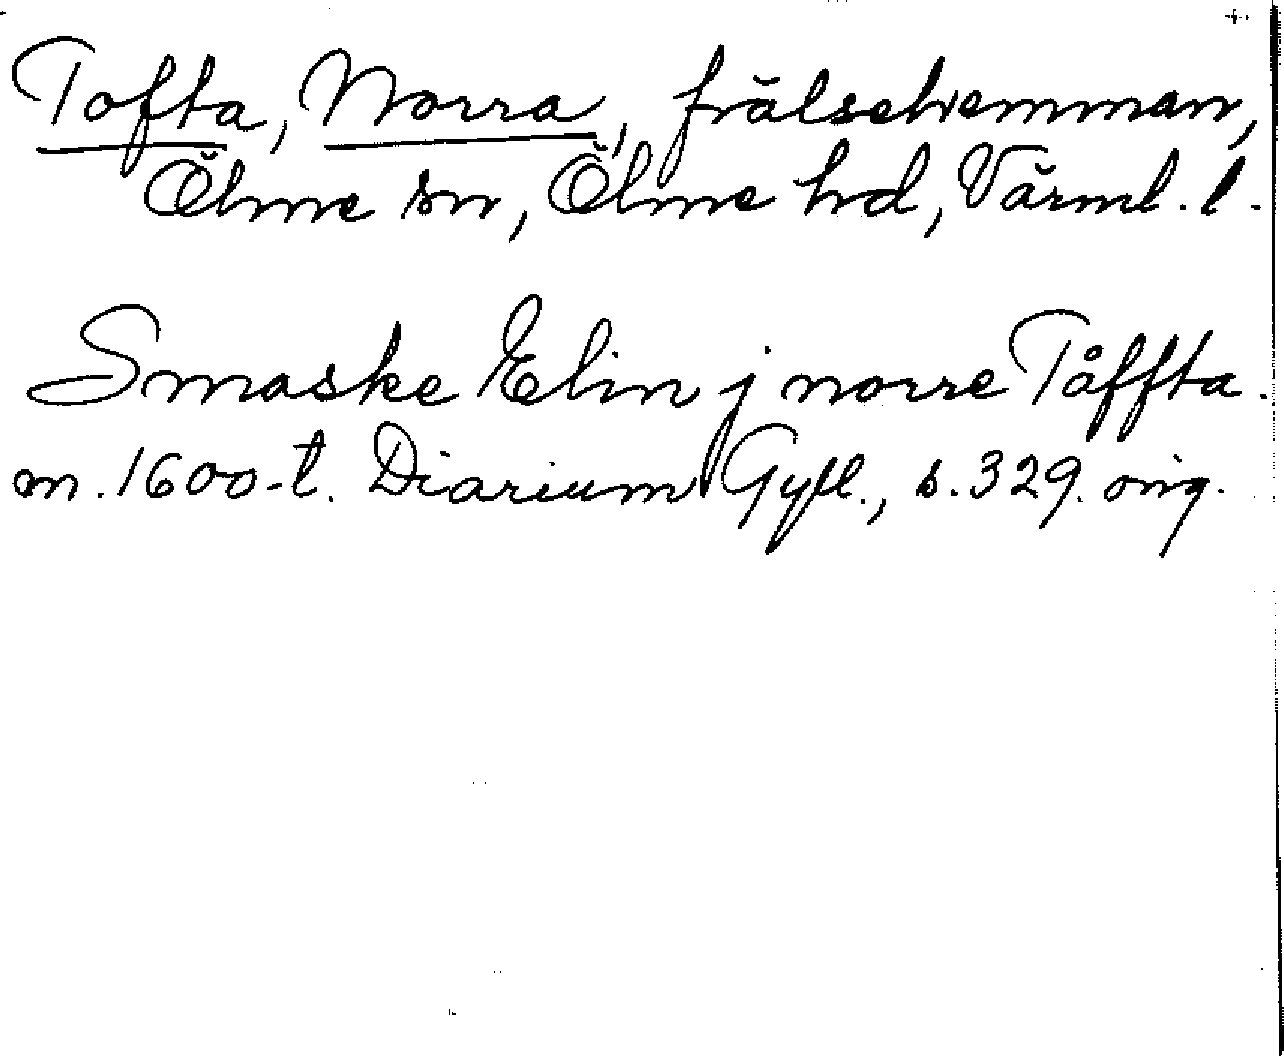 Tofta, Norra, frälsehemman,
Ölme sn, Ölme hd, Värml. l.
Smaske Elin j norre Tåffta.
m. 1600-t. Diarium Gyll., s. 329. orig.